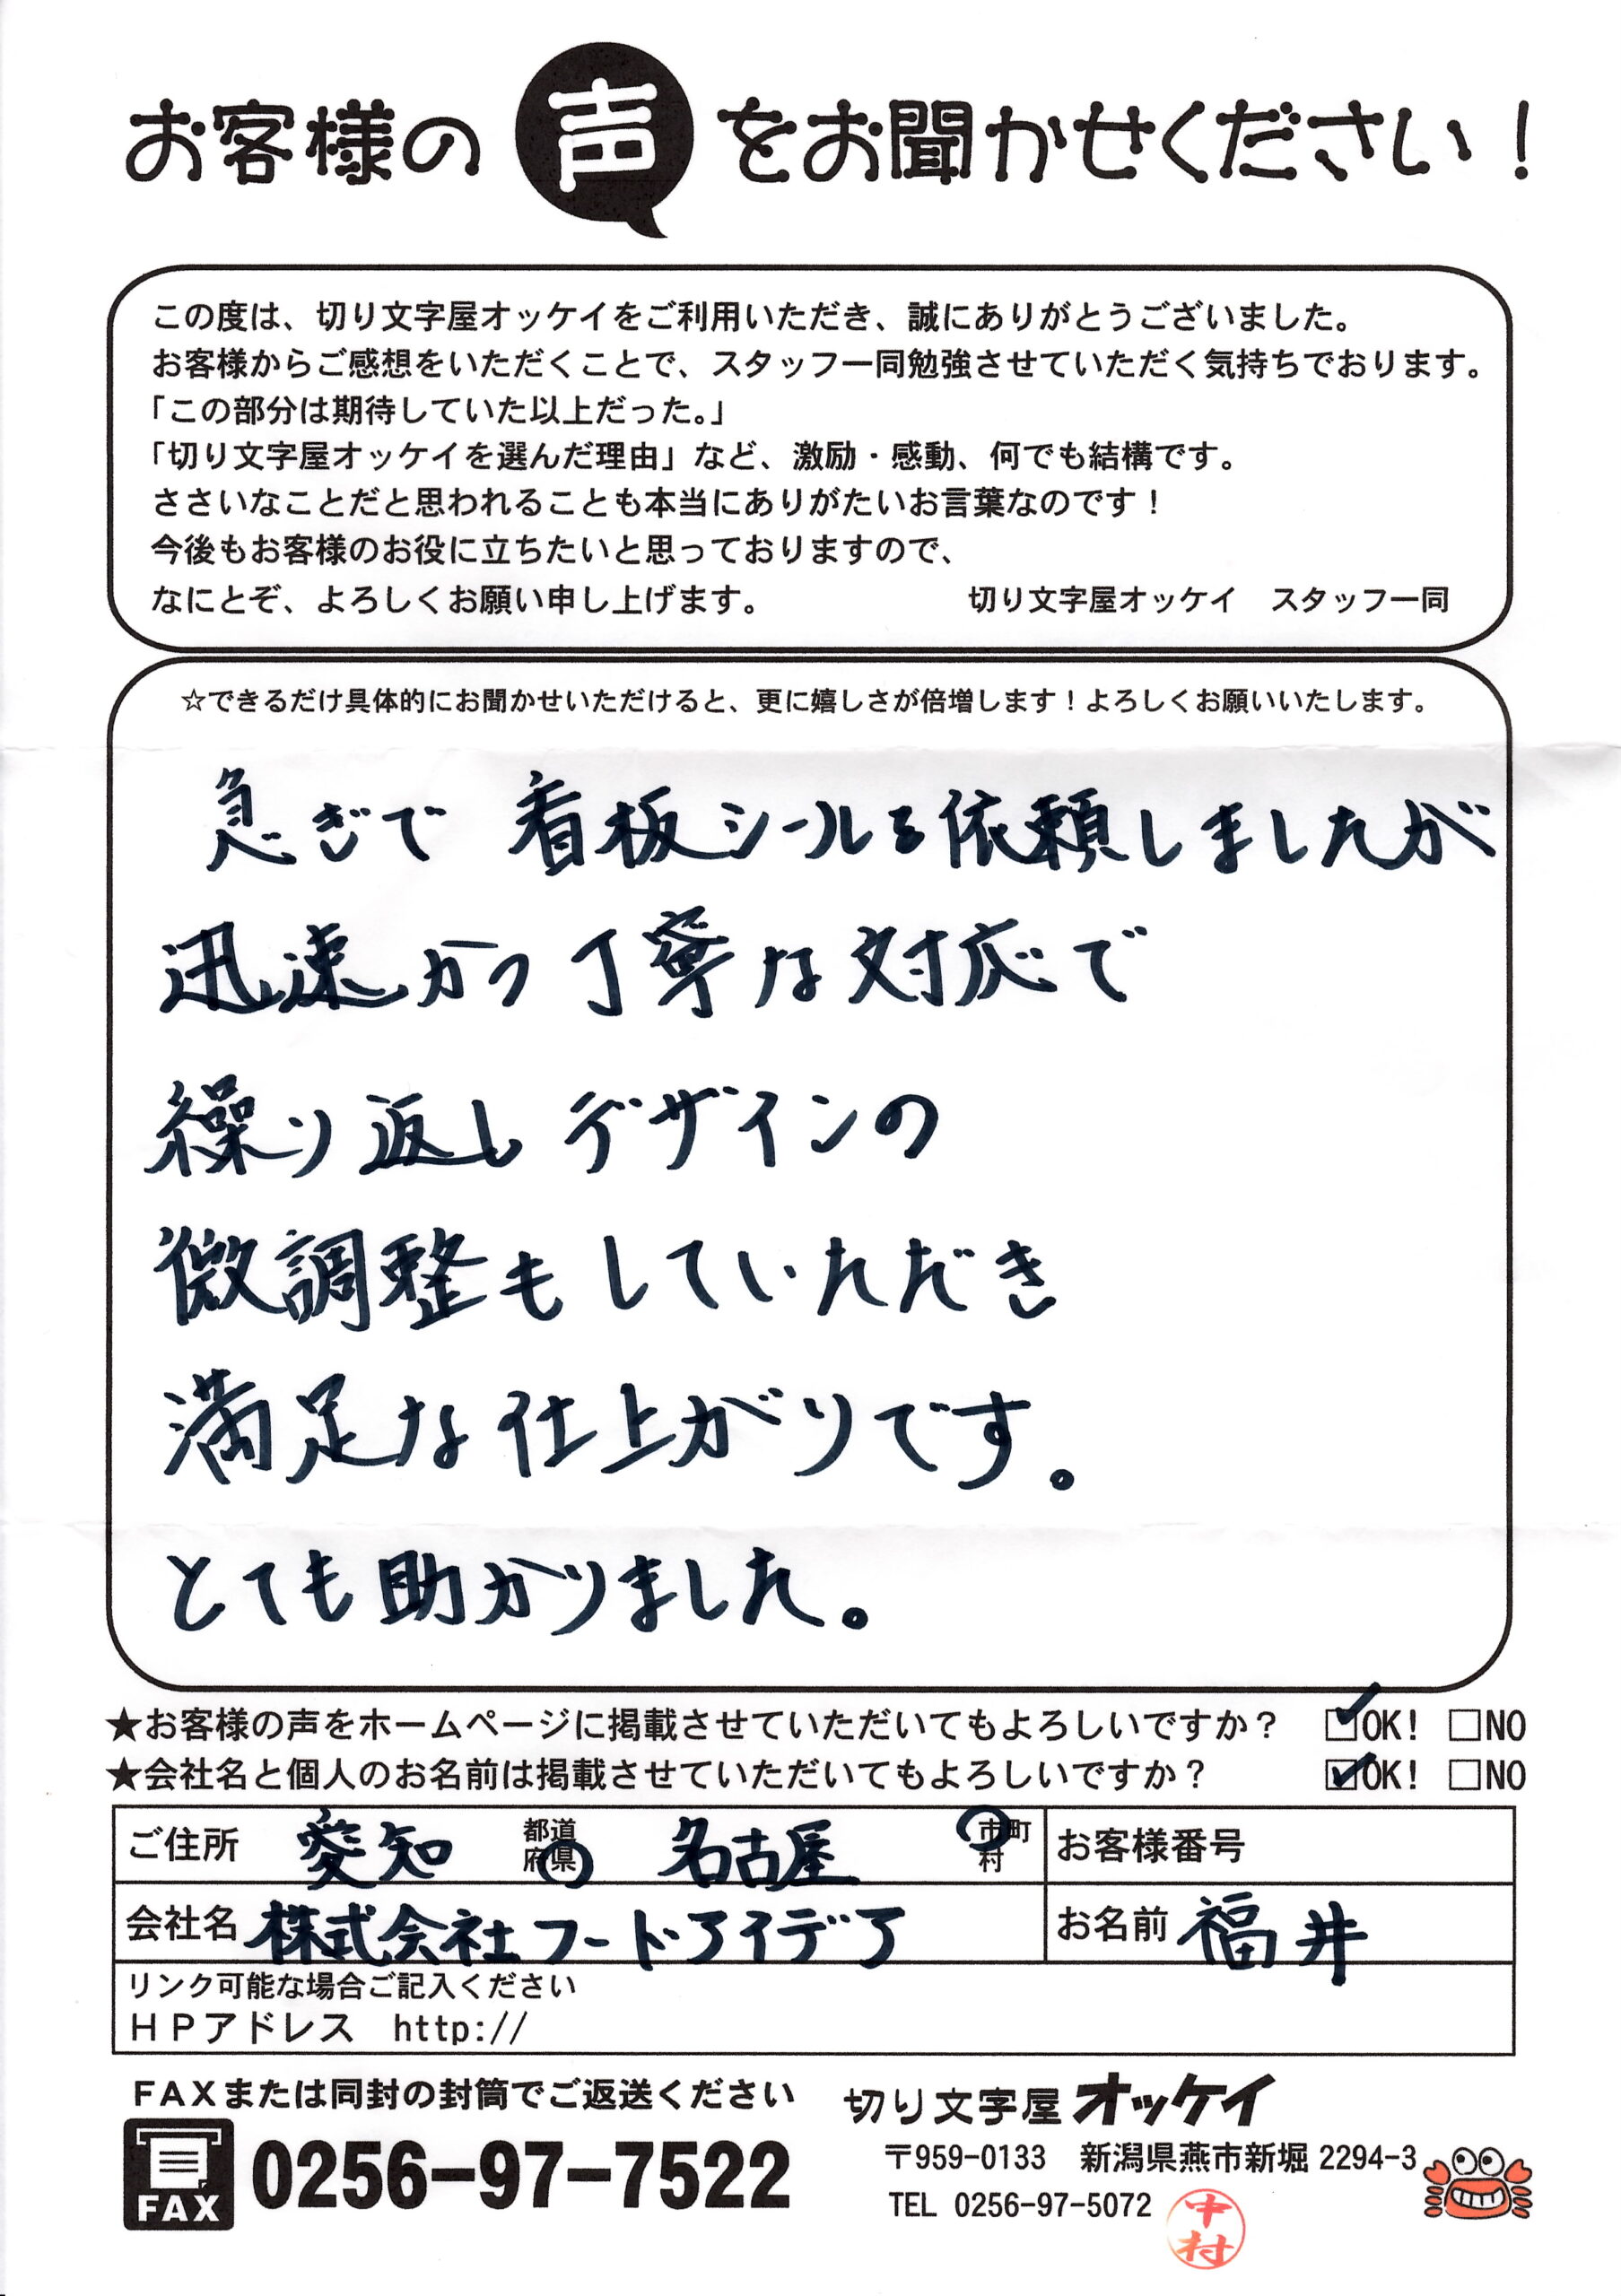 お客様の声をお聞かせください！
この度は、切り文字屋オッケイをご利用いただき、誠にありがとうございました。
お客様からご感想をいただくことで、スタッフ一同勉強させていただく気持ちでおります。
「この部分は期待していた以上だった。」
「切り文字屋オッケイを選んだ理由」など、激励・感動、何でも結構です。
ささいなことだと思われることも本当にありがたいお言葉なのです！
今後もお客様のお役に立ちたいと思っておりますので、
なにとぞ、よろしくお願い申し上げます。　切り文字屋オッケイ　スタッフ一同
☆できるだけ具体的にお聞かせいただけると、更に嬉しさが倍増します！よろしくお願いいたします。
急ぎで 看板シールを依頼しましたが
迅速かつ丁寧な対応で
繰り返しデザインの
微調整もしていただき
満足な仕上がりです。
とても助かりました。
★お客様の声をホームページに掲載させていただいてもよろしいですか？　☑OK！ □NO
★会社名と個人のお名前は掲載させていただいてもよろしいですか？　☑OK！ □NO
ご住所　愛知　都道府県　名古屋　市町村　お客様番号
会社名　株式会社フードアイデア　お名前　福井
リンク可能な場合ご記入ください
ＨＰアドレス　http://
ＦＡＸまたは同封の封筒でご返送ください
FAX 0256-97-7522
切り文字屋オッケイ
〒959-0133　新潟県燕市新堀 2294-3
TEL 0256-97-5072
中村